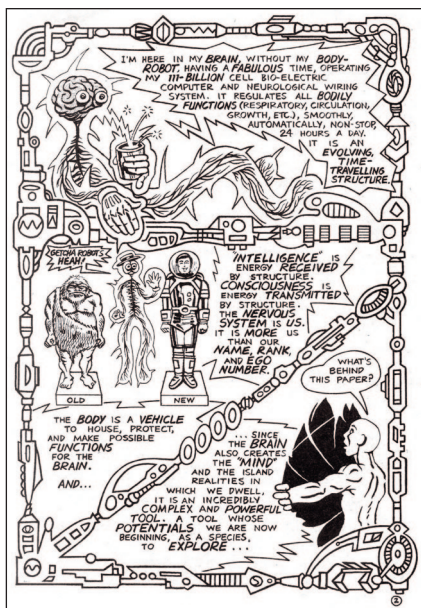 I'M HERE IN MY BRAIN, WITHOUT MY BODY-
ROBOT, HAVING A FABULOUS TIME, OPERATING
MY 111-BILLION CELL BIO-ELECTRIC
COMPUTER AND NEUROLOGICAL WIRING
SYSTEM. IT REGULATES ALL BODILY
FUNCTIONS (RESPIRATORY, CIRCULATION,
GROWTH, ETC.), SMOOTHLY,
AUTOMATICALLY, NON-STOP,
24 HOURS A DAY.
IT IS AN
EVOLVING,
TIME-
TRAVELLING
STRUCTURE.
GETCHA ROBOTS
HEAH!
OLD
NEW
"INTELLIGENCE" IS
ENERGY RECEIVED
BY STRUCTURE.
CONSCIOUSNESS IS
ENERGY TRANSMITTED
BY STRUCTURE.
THE NERVOUS
SYSTEM IS US.
IT IS MORE US
THAN OUR
NAME, RANK,
AND EGO
NUMBER.
THE BODY IS A VEHICLE
TO HOUSE, PROTECT,
AND MAKE POSSIBLE
FUNCTIONS
FOR THE
BRAIN.
AND...
... SINCE
THE BRAIN
ALSO CREATES
THE "MIND"
AND THE ISLAND
REALITIES IN
WHICH WE DWELL,
IT IS AN INCREDIBLY
COMPLEX AND POWERFUL
TOOL. A TOOL WHOSE
POTENTIALS WE ARE NOW
BEGINNING, AS A SPECIES,
TO EXPLORE...
WHAT'S
BEHIND
THIS PAPER?
2